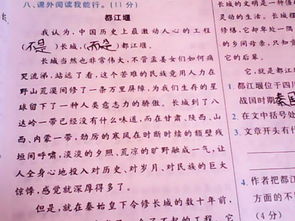 八、课外阅读我能行。(11分)
都江堰
我认为,中国历史上最激动人心的工程
(不是)长城,(而是)都江堰。
长城当然也非常伟大,不管孟姜女们如何痛
哭流涕,站远了看,这个苦难的民族竟用人力在
野山荒漠间修了一条万里屏障,为我们生存的星
球留下了一种人类意志力的骄傲。长城到了八
达岭一带已经没有什么味道,而在甘肃、陕西、山
西、内蒙一带,劲厉的寒风在时断时续的颓壁残
垣间呼啸,淡淡的夕照、荒凉的旷野融成一气,让
人全身心地投入对历史、对岁月、对民族的巨大
惊悸,感觉就深厚得多了。
但是,就在秦始皇下令修长城的数十年前,
长城的文明是一种僵
灵动的生活。长城摆
它却卑处一
的乡间母亲,只知
它的后辈。
它,就是都江
2. 都江堰位于四
战国时期秦国
3. 在文中括号处
4. 文章开头有什
5. 作者把都江
万里
它